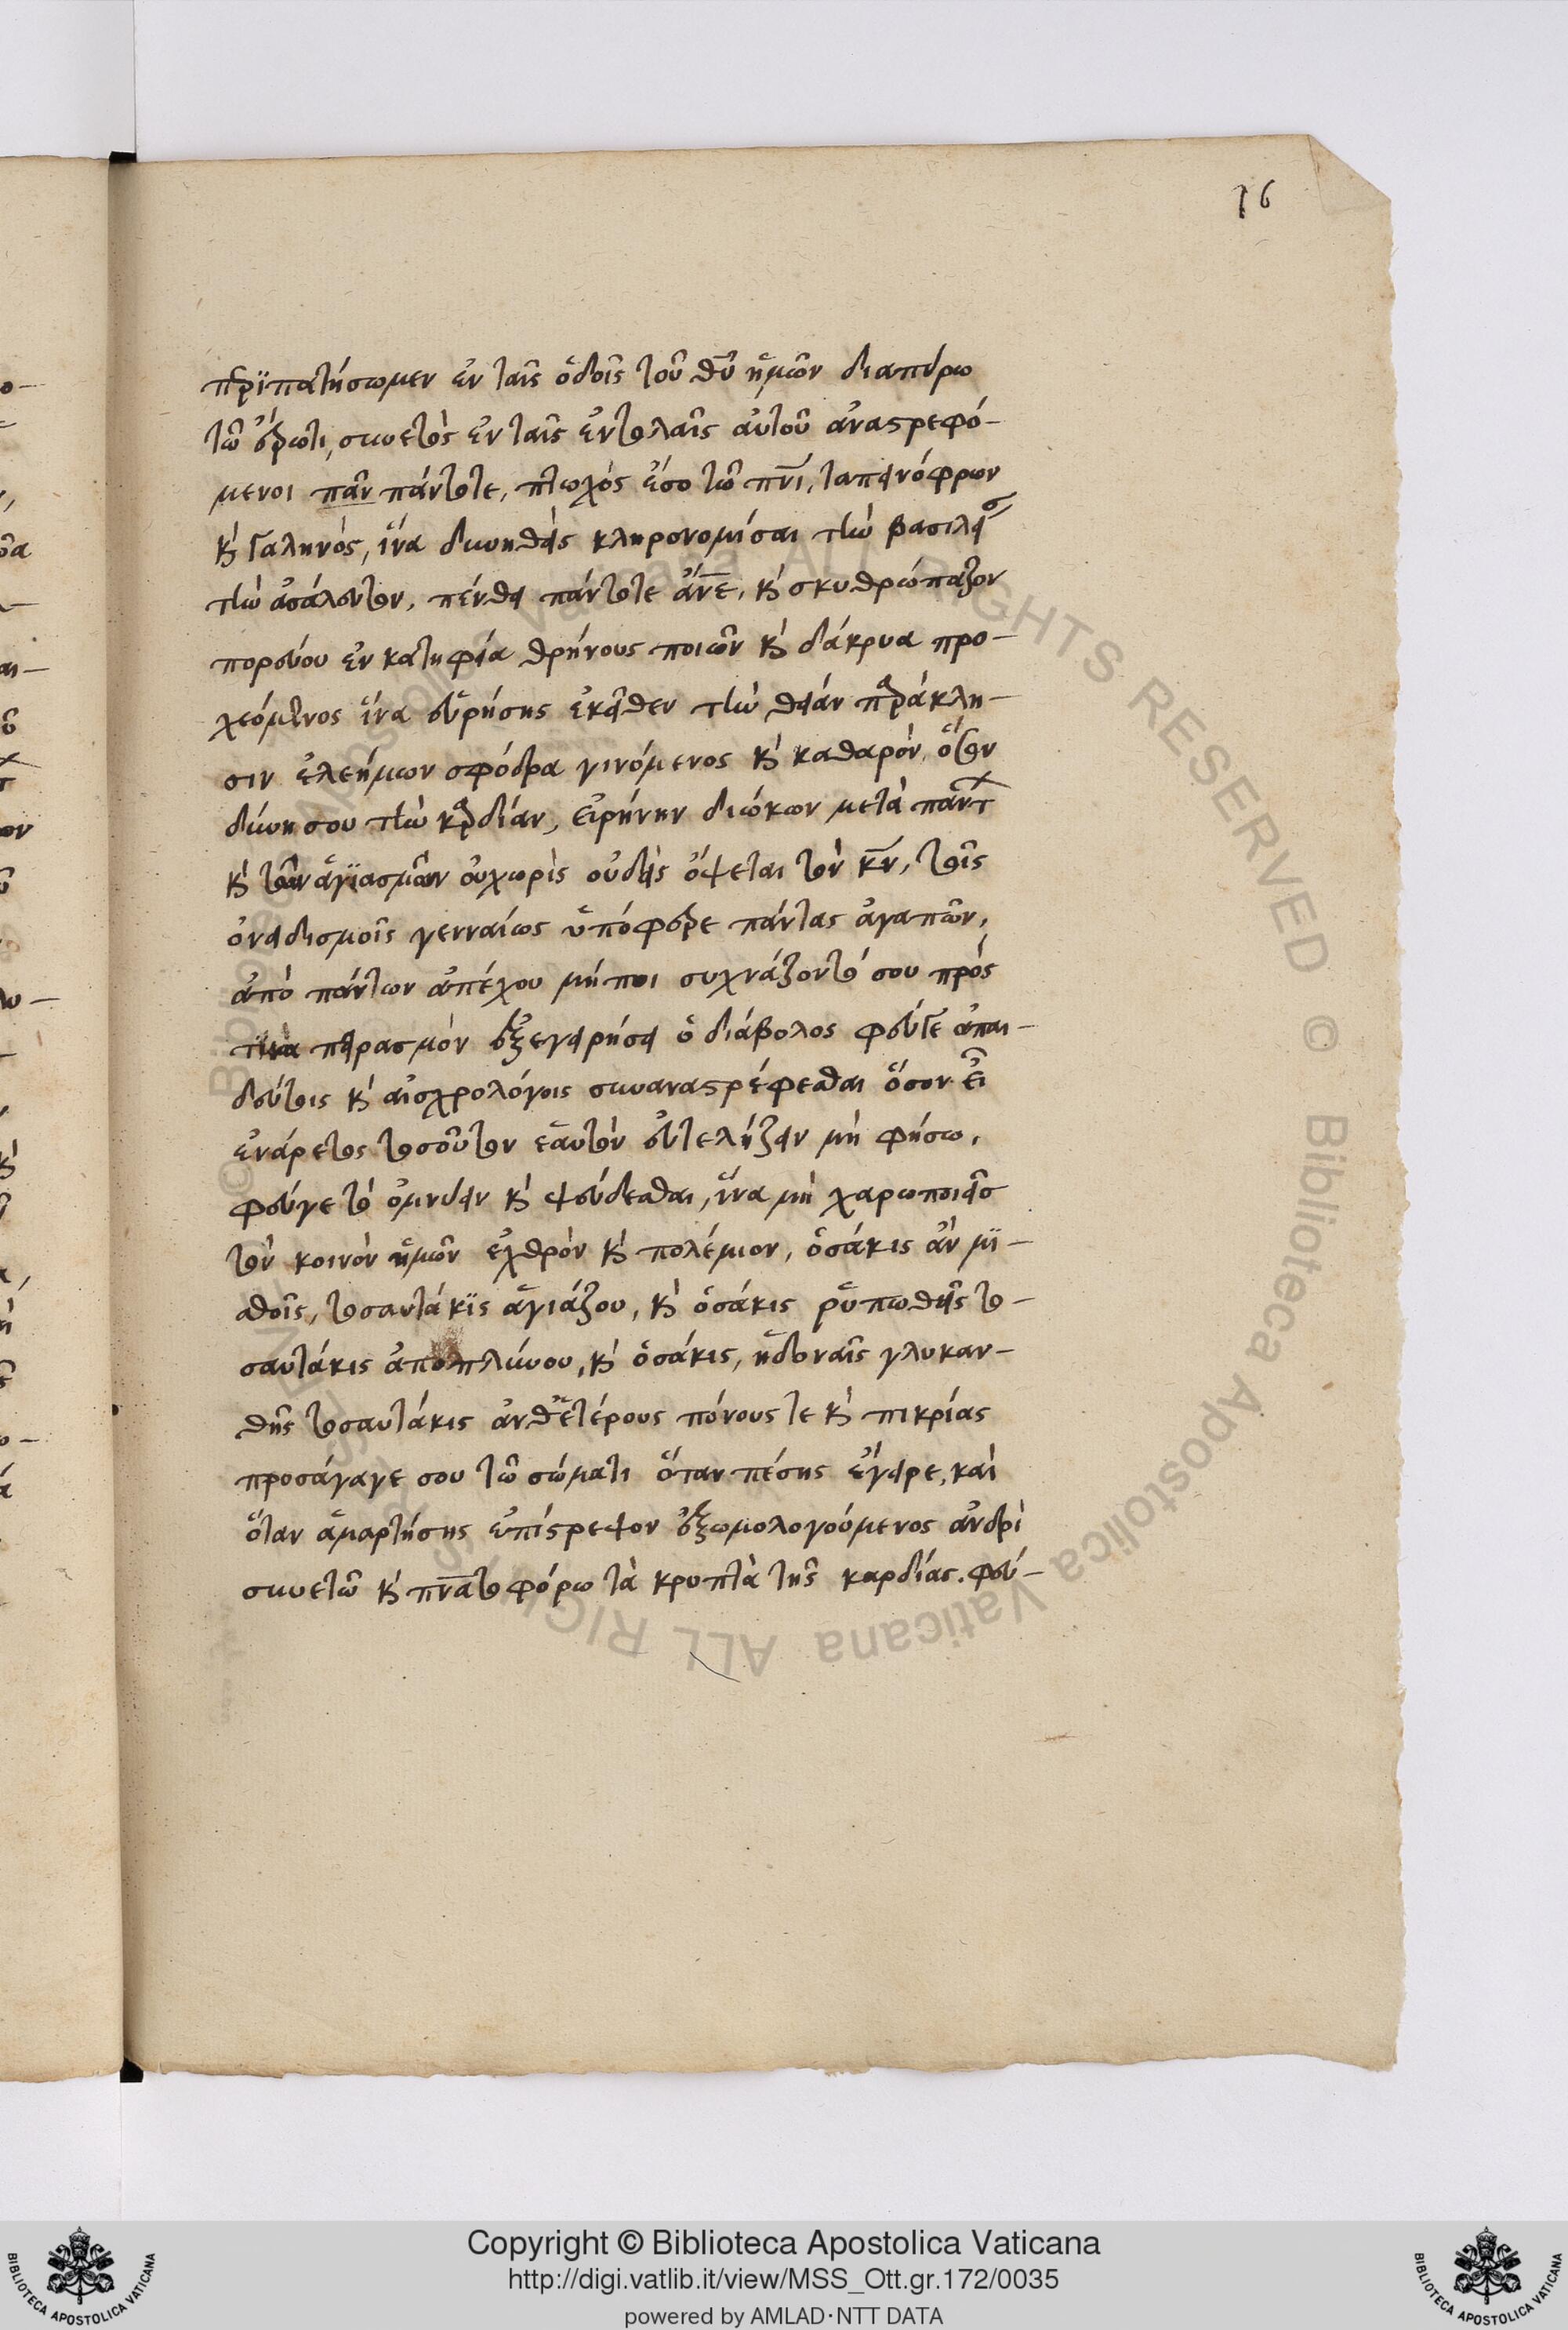 16
περϊπατήσωμεν ἐν ταῖς ὁδοῖς τοῦ θυ ἡμῶν διαπύρω
τῶ ἔρωτι, συνετῶς ἐν ταῖς ἐντολαῖς αὐτοῦ ἀναστρεφό-
μενοι πᾶν πάντοτε, πτωχός ἔσο τῶ πνι, ταπεινόφρων
κ γαληνός, ἵνα δυνηθεὶς κληρονομίσαι τὴν βασιλείας
τὴν ἀσάλευτον, πένθει πάντοτε ἄνε, κ σκυθρώπαζον
πορεύου ἐν κατηφεία θρήνους ποιῶν κ δάκρυα προ-
χεόμενος ἵνα εὑρήσης ἐκεῖθεν τὴν θείαν παράκλη-
σιν ἐλεήμων σφόδρα γινόμενος κ καθαρόν, ὅσον
δύνη σου τὴν καρδίαν, εἰρήνην διώκων μετὰ παντ
κ τὸν ἁγϊασμὸν οὐχωρὶς οὐδεὶς ὄψεται τὸν κν, τοῖς
ὀνειδισμοῖς γενναίως ὑπόφερε πάντας ἀγαπῶν,
ἀπὸ πάντων ἀπέχου μήποι συχνάζοντό σου πρός
τινα πειρασμόν ἐξεγειρήσει ὁ διάβολος φεῦγε ἀπαι-
δεύτοις κ αἰσχρολόγοις συναναστρέφεσθαι ὅσον εἶ
ἐνάρετος τοσοῦτον ἑαυτὸν εὐτελήζειν μὴ φήσω,
φεύγε τὸ ὀμνύειν κ ψεύδεσθαι, ἵνα μὴ χαρωποιεῖσ
τὸν κοινὸν ἡμῶν ἐχθρὸν κ πολέμιον, ὁσάκις ἂν μϊ-
αθοῖς, τοσαυτάκϊς ἁγιάζου, κ ὁσάκις ῥυπωθῆς το-
σαυτάκις ἀποπλύνου, κ ὁσάκις, ἡδοναῖς γλυκαν-
θῆς τοσαυτάκις ἀνθ ἑτέρους πόνους τε κ πικρίας
προσάγαγε σου τῶ σώματι ὅταν πέσης ἔγειρε, καὶ
ὅταν ἁμαρτήσης ἐπίστρεψον ἐξωμολογούμενος ἀνδρὶ
συνετῶ κ πνατοφόρω τὰ κρυπτὰ τῆς καρδίας. φεύ-
© Biblioteca Apostolica Vaticana ALL RIGHTS RESERVED © Biblioteca Apostolica Vaticana ALL RIGHTS RESERVED
Copyright © Biblioteca Apostolica Vaticana
http://digi.vatlib.it/view/MSS_Ott.gr.172/0035
powered by AMLAD·NTT DATA
BIBLIOTECA APOSTOLICA VATICANA
BIBLIOTECA APOSTOLICA VATICANA